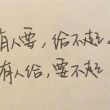 有人要，给不起。
有人给，要不起